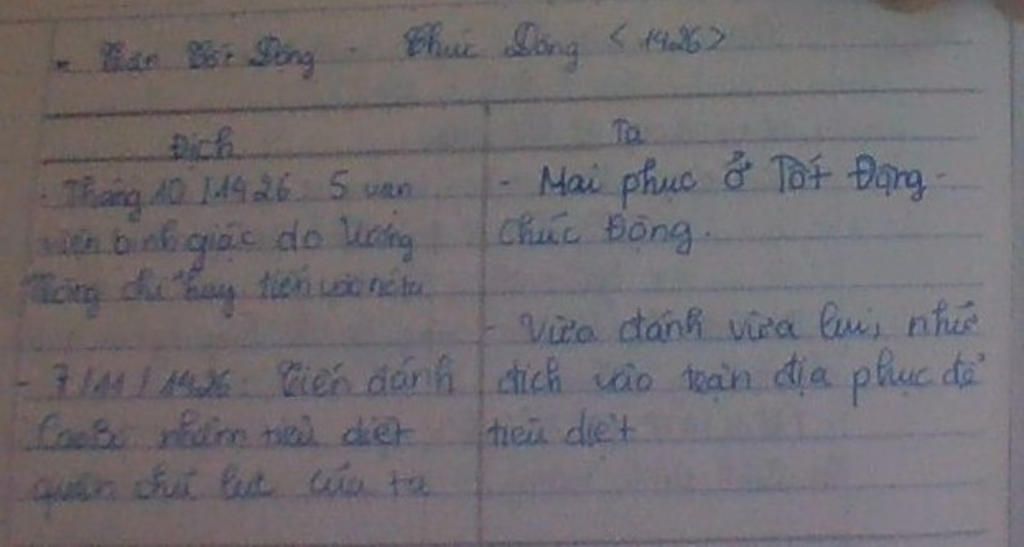 - Trận Tốt Động - Chúc Động < 1426 >
Địch
Ta
- Tháng 10/1426: 5 vạn
viện binh giặc do Vương
Thông chỉ huy tiến vào nc ta
- 7/11/1426: Tiến đánh
Cao Bộ nhằm tiêu diệt
quân chủ lực của ta
- Mai phục ở Tốt Động -
Chúc Động.
- Vừa đánh vừa lui, nhử
địch vào trận địa phục để
tiêu diệt